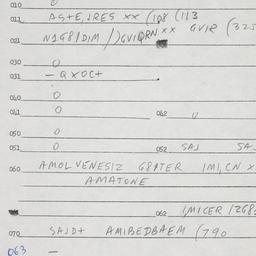 010 0
011 AStE, JRES xx (108 (113
021 N1G8/DIM /)GVIQRN xx GVIR (325
030 0
031 - QXOC+
040 0
041 0 042 U
050 0
051 0 052 SAJ SA
060 AMOL VENESIZ G8ATER IMI, CN x
AMATONE
062 (MICER 12G8
070 SAJD+ AMIBEDBAEM (790
063 -